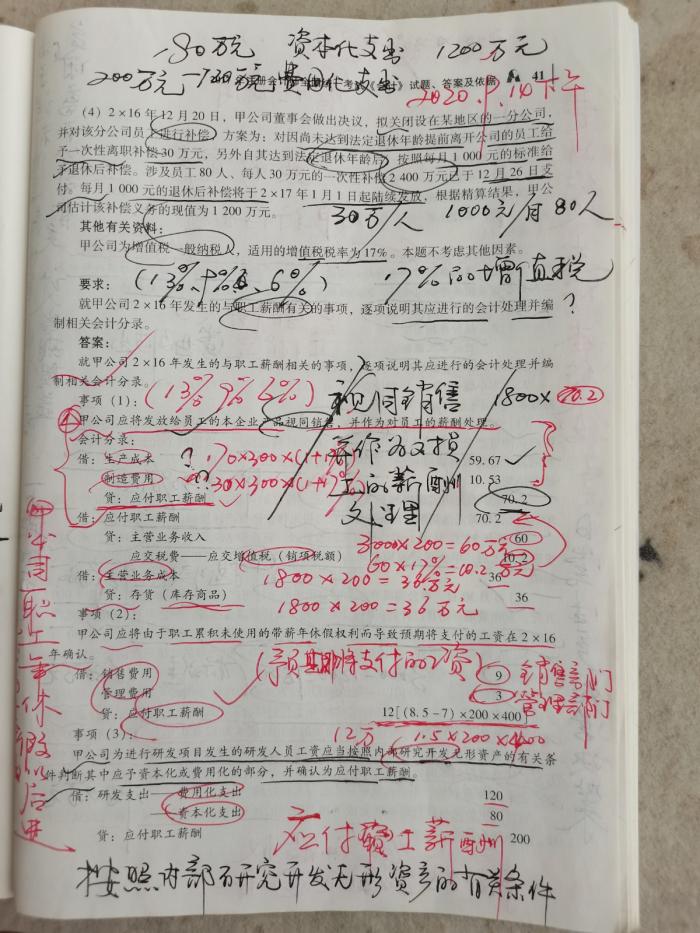 80万元 资本化支出 1200万元
200万元 120万元 费用化支出 试题、答案及依据 41
2020.9.14下午
(4) 2×16年12月20日，甲公司董事会做出决议，拟关闭设在某地区的一分公司，
并对该分公司员工进行补偿，方案为：对因尚未达到法定退休年龄提前离开公司的员工给
予一次性离职补偿30万元，另外自其达到法定退休年龄后，按照每月1 000元的标准给
予退休后补偿。涉及员工80人、每人30万元的一次性补偿2 400万元已于12月26日支
付。每月1 000元的退休后补偿将于2×17年1月1日起陆续发放，根据精算结果，甲公
司估计该补偿义务的现值为1 200万元。
30万/人 1000元/月 80人
其他有关资料：
甲公司为增值税一般纳税人，适用的增值税税率为17%。本题不考虑其他因素。
要求： (13%、9%、6%) 17%的增值税?
就甲公司2×16年发生的与职工薪酬有关的事项，逐项说明其应进行的会计处理并编
制相关会计分录。
答案：
就甲公司2×16年发生的与职工薪酬相关的事项，逐项说明其应进行的会计处理并编
制相关会计分录。
事项（1）： (13% 9% 6%) 视同销售 1800× 70.2
甲公司应将发放给员工的本企业产品视同销售，并作为对员工的薪酬处理。
会计分录： 并作为对员
借：生产成本 ? 170×300×(1+17% 59.67
制造费用 ?? 30×300×(1+17% 工的薪酬 10.53
贷：应付职工薪酬 处理 70.2
借：应付职工薪酬 70.2
贷：主营业务收入 3000×200=60万元 60
应交税费——应交增值税（销项税额） 60×17%=10.2万元 10.2
借：主营业务成本 1800×200=36万元 36
贷：存货（库存商品） 1800×200=36万元 36
事项（2）：
甲公司应将由于职工累积未使用的带薪年休假权利而导致预期将支付的工资在2×16
年确认。
借：销售费用 (预期将支付的工资) 9 销售部门
管理费用 3 管理部门
贷：应付职工薪酬 12[(8.5-7)×200×400]
事项（3）： 12万 1.5×200×400
甲公司为进行研发项目发生的研发人员工资应当按照内部研究开发无形资产的有关条
件判断其中应予资本化或费用化的部分，并确认为应付职工薪酬。
借：研发支出——费用化支出 120
——资本化支出 80
贷：应付职工薪酬 应付职工薪酬 200
按照内部研究开发无形资产的有关条件